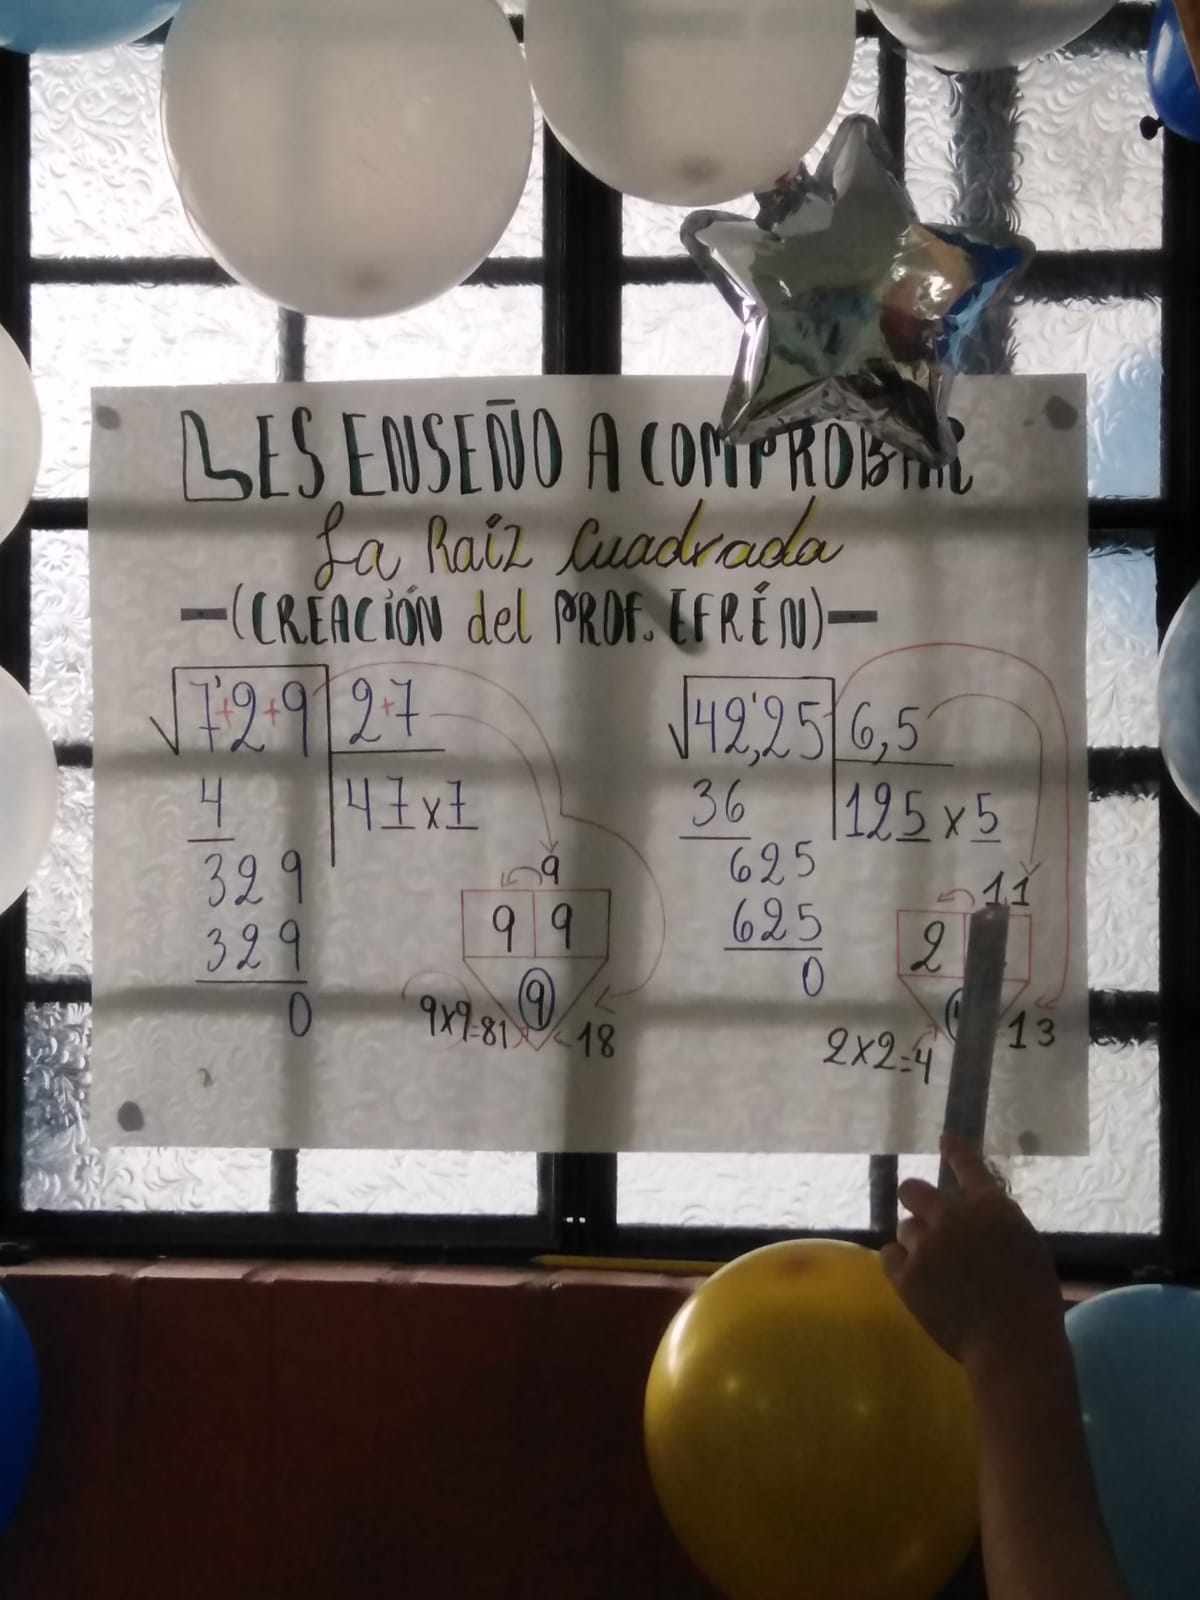 LES ENSEÑO A COMPROBAR
La Raíz Cuadrada
-(CREACIÓN del PROF. EFRÉN)-
√7'+2+9 2+7
4 47x7
329
329
0
9
9 9
9
9x9=81 18
√42,'25 6,5
36 125 x 5
625
625
0
11
2
2x2=4 13